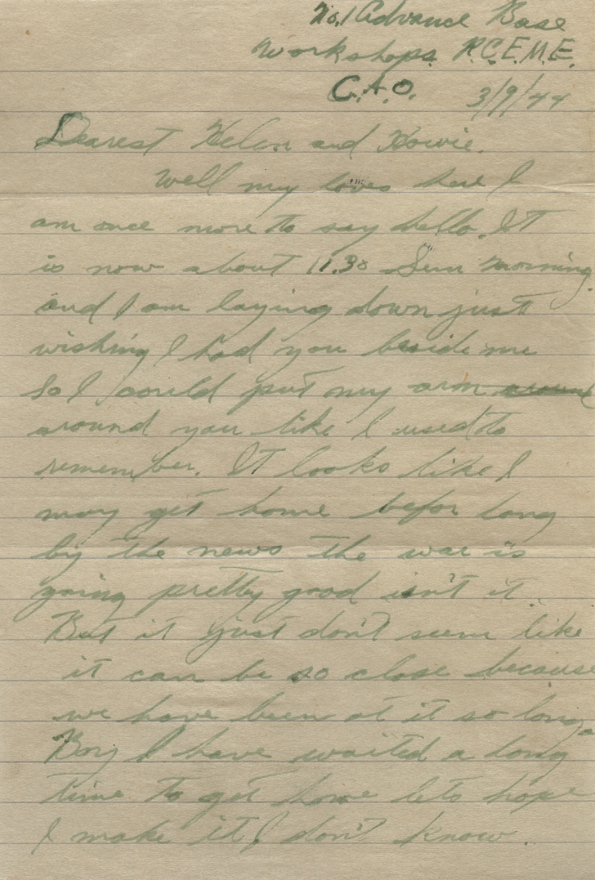 No. 1 Advance Base
Workshops R.C.E.M.E.
C.A.O. 3/9/44
Dearest Helen and Howie.
Well my loves here I
am once more to say hello. It
is now about 11.30 Sun morning.
and I am laying down just
wishing I had you beside me
So I could put my arm around
around you like I used to
remember. It looks like I
may get home befor long
by the news the war is
going pretty good isn't it.
But it just don't seem like
it can be so close because
we have been at it so long.
Boy I have waited a long
time to get home lets hope
I make it I don't know.